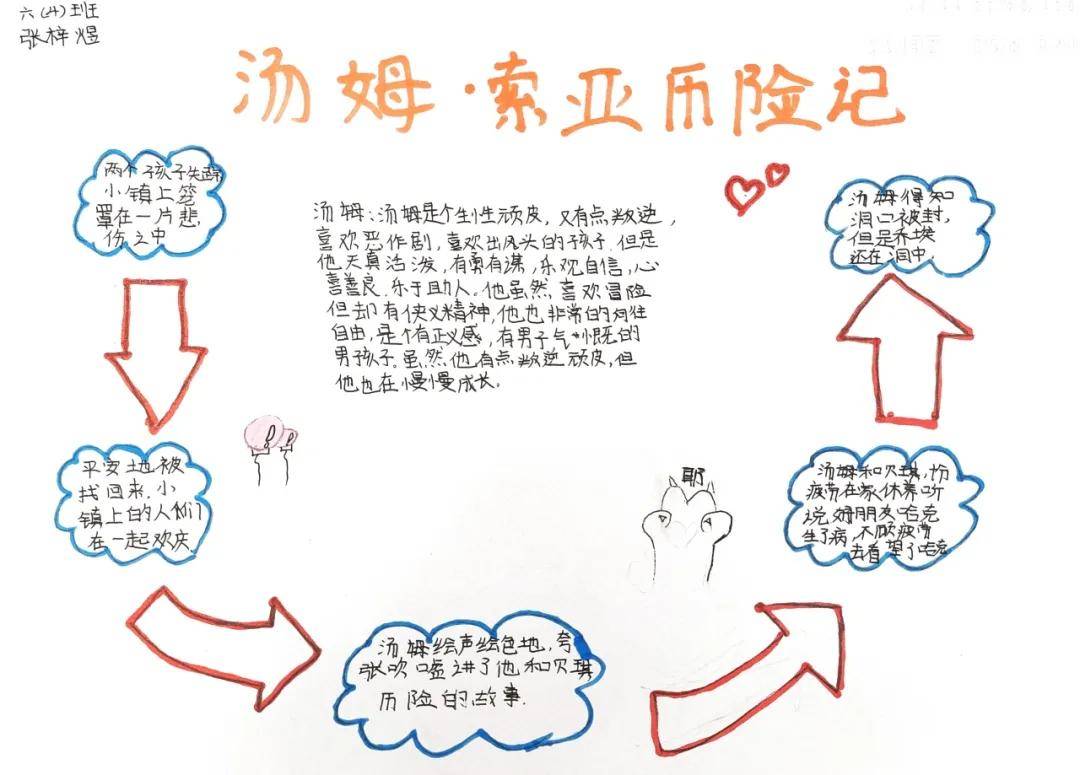 六(4)班
张梓煜
汤姆·索亚历险记
两个孩子失踪
小镇上笼
罩在一片悲
伤之中
汤姆:汤姆是个生性顽皮,又有点叛逆,
喜欢恶作剧,喜欢出风头的孩子.但是
他天真活泼,有勇有谋,乐观自信,心
善良.乐于助人。他虽然喜欢冒险
但却有侠义精神,他也非常的向往
自由,是个有正义感,有男子气慨的
男孩子。虽然他有点叛逆顽皮,但
他也在慢慢成长.
平安地被
找回来.小
镇上的人们
在一起欢庆
汤姆绘声绘色地,夸
张吹嘘讲了他和贝琪
历险的故事.
耶
汤姆和贝琪,
疲劳在家休养听
说姆朋友哈克
生了病,不顾疲劳
去看望了哈克
汤姆得知
洞口被封,
但是乔埃
还在洞中.